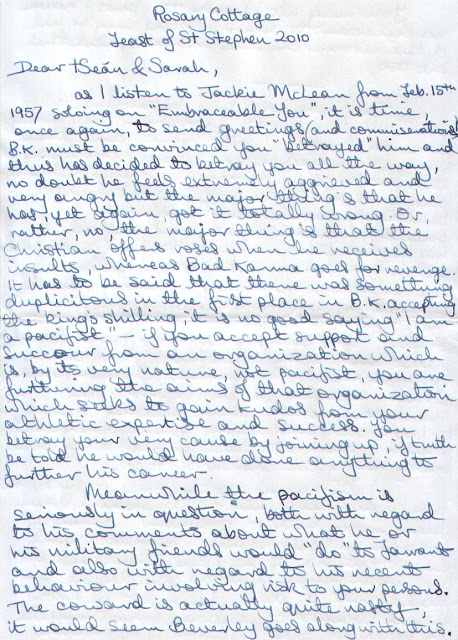 Rosary Cottage
Feast of St Stephen 2010
Dear +Seán & Sarah,
as I listen to Jackie McLean from Feb. 15th
1957 soloing on "Embraceable You", it is time,
once again, to send greetings (and commiserations)
B.K. must be convinced you "betrayed" him and
thus has decided to betray you all the way,
no doubt he feels extremely aggrieved and
very angry but the major thing is that he
has, yet again, got it totally wrong. Or,
rather, no, the major thing is that the
Christian offers roses where he receives
insults, whereas Bad Karma goes for revenge.
It has to be said that there was something
duplicitous in the first place in B.K. accepting
the king's shilling; it is no good saying "I am
a pacifist" – if you accept support and
succour from an organization which
is, by its very nature, not pacifist, you are
furthering the aims of that organization
which seeks to gain kudos from your
athletic expertise and success. You
betray your very cause by joining up, if truth
be told he would have done anything to
further his career.
Meanwhile the pacifism is
seriously in question, both with regard
to his comments about what he or
his military friends would "do" to Farrant
and also with regard to his recent
behaviour involving risk to your persons.
The coward is actually quite nasty,
it would seem Beverley goes along with this.